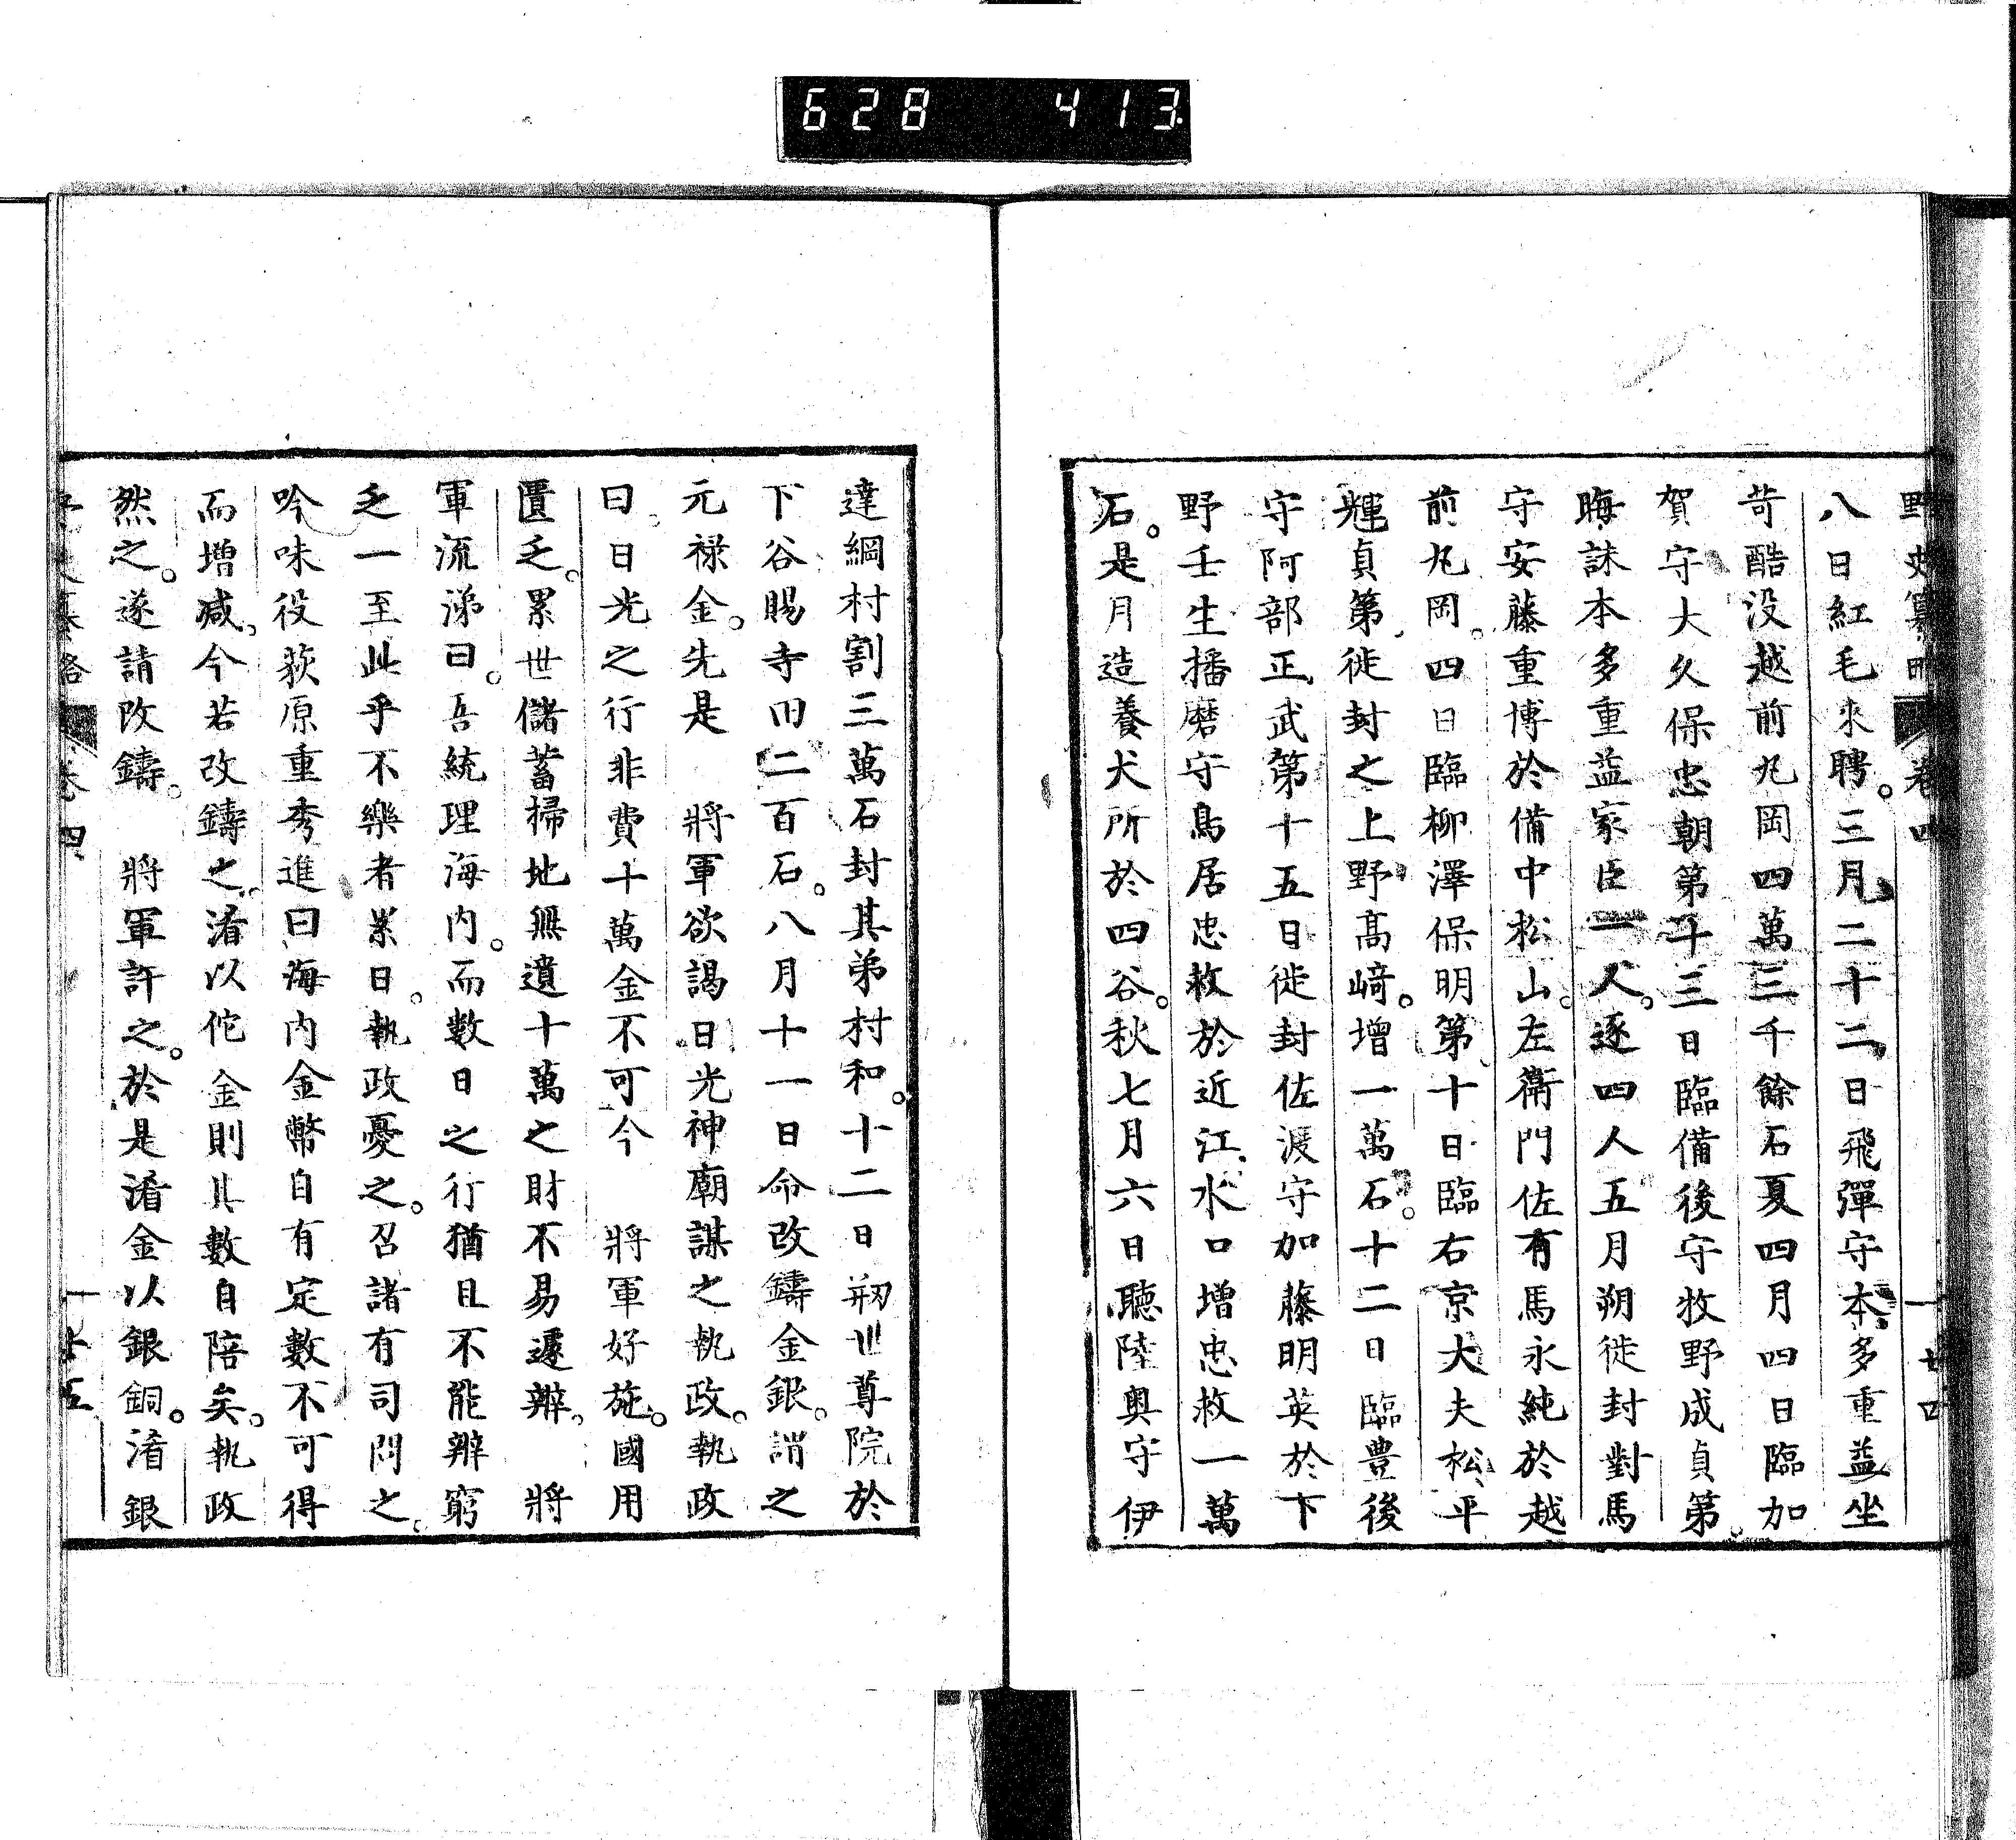 628 413
野史纂略 卷四 一 七四
八日紅毛來聘。三月二十二日飛彈守本多重益坐
苛酷没越前丸岡四萬三千餘石夏四月四日臨加
賀守大久保忠朝第十三日臨備後守牧野成貞第
晦誅本多重益家臣一人。逐四人五月朔徙封對馬
守安藤重博於備中松山。左衛門佐有馬永純於越
前丸岡。四日臨柳澤保明第十日臨右京大夫松平
輝貞第徙封之上野高﨑。增一萬石。十二日臨豊後
守阿部正武第十五日徙封佐渡守加藤明英於下
野壬生播磨守鳥居忠救於近江水口增忠救一萬
石。是月造養犬所於四谷。秋七月六日聽陸奥守伊
達綱村割三萬石封其弟村和。十二日剏尊院於
下谷賜寺田二百石。八月十一日命改鑄金銀。謂之
元禄金。先是 將軍欲謁日光神廟謀之執政。執政
曰。日光之行非費十萬金不可今 將軍好施。國用
匱乏。累世儲蓄掃地無遺十萬之財不易遽辨。 將
軍流涕曰。吾統理海内。而數日之行猶且不能辨窮
乏一至此乎不樂者累日。執政憂之。召諸有司問之。
吟味役荻原重秀進曰海内金幣自有定數不可得
而增減。今若改鑄之。淆以佗金則其數自陪矣。執政
然之。遂請改鑄。 將軍許之。於是淆金以銀銅。淆銀